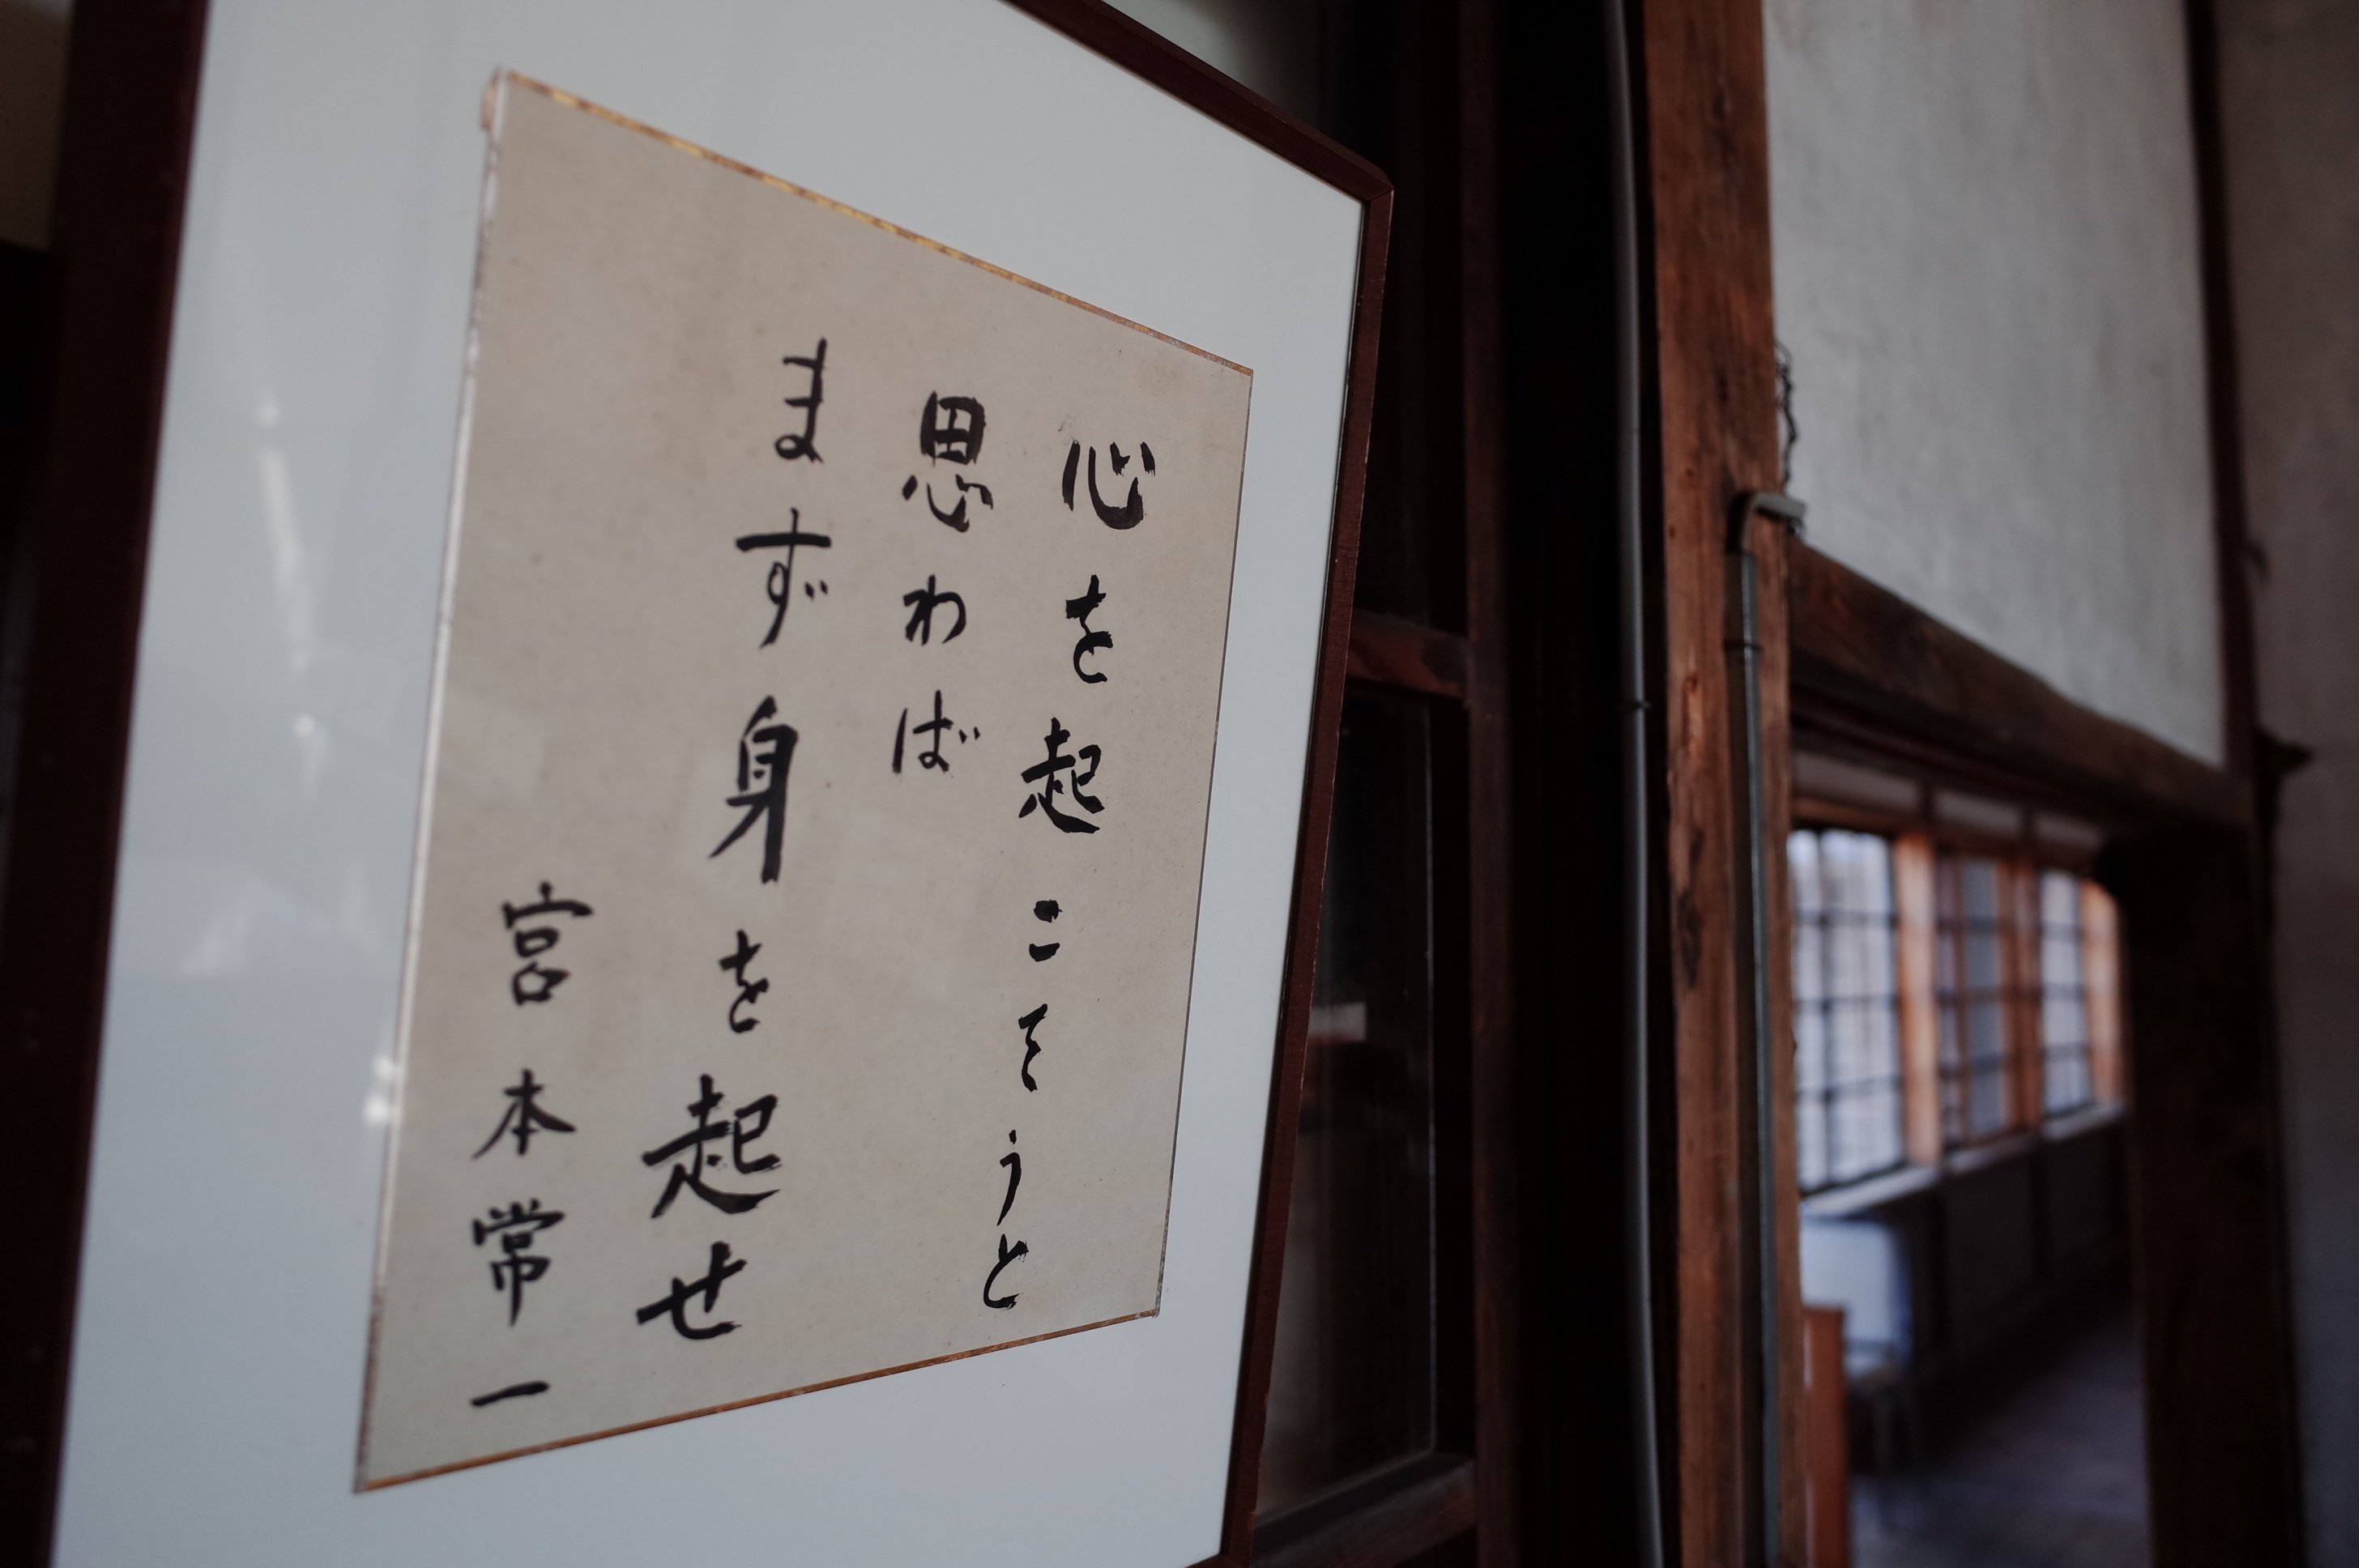 心を起こそうと
思わば
まず身を起せ
宮本常一